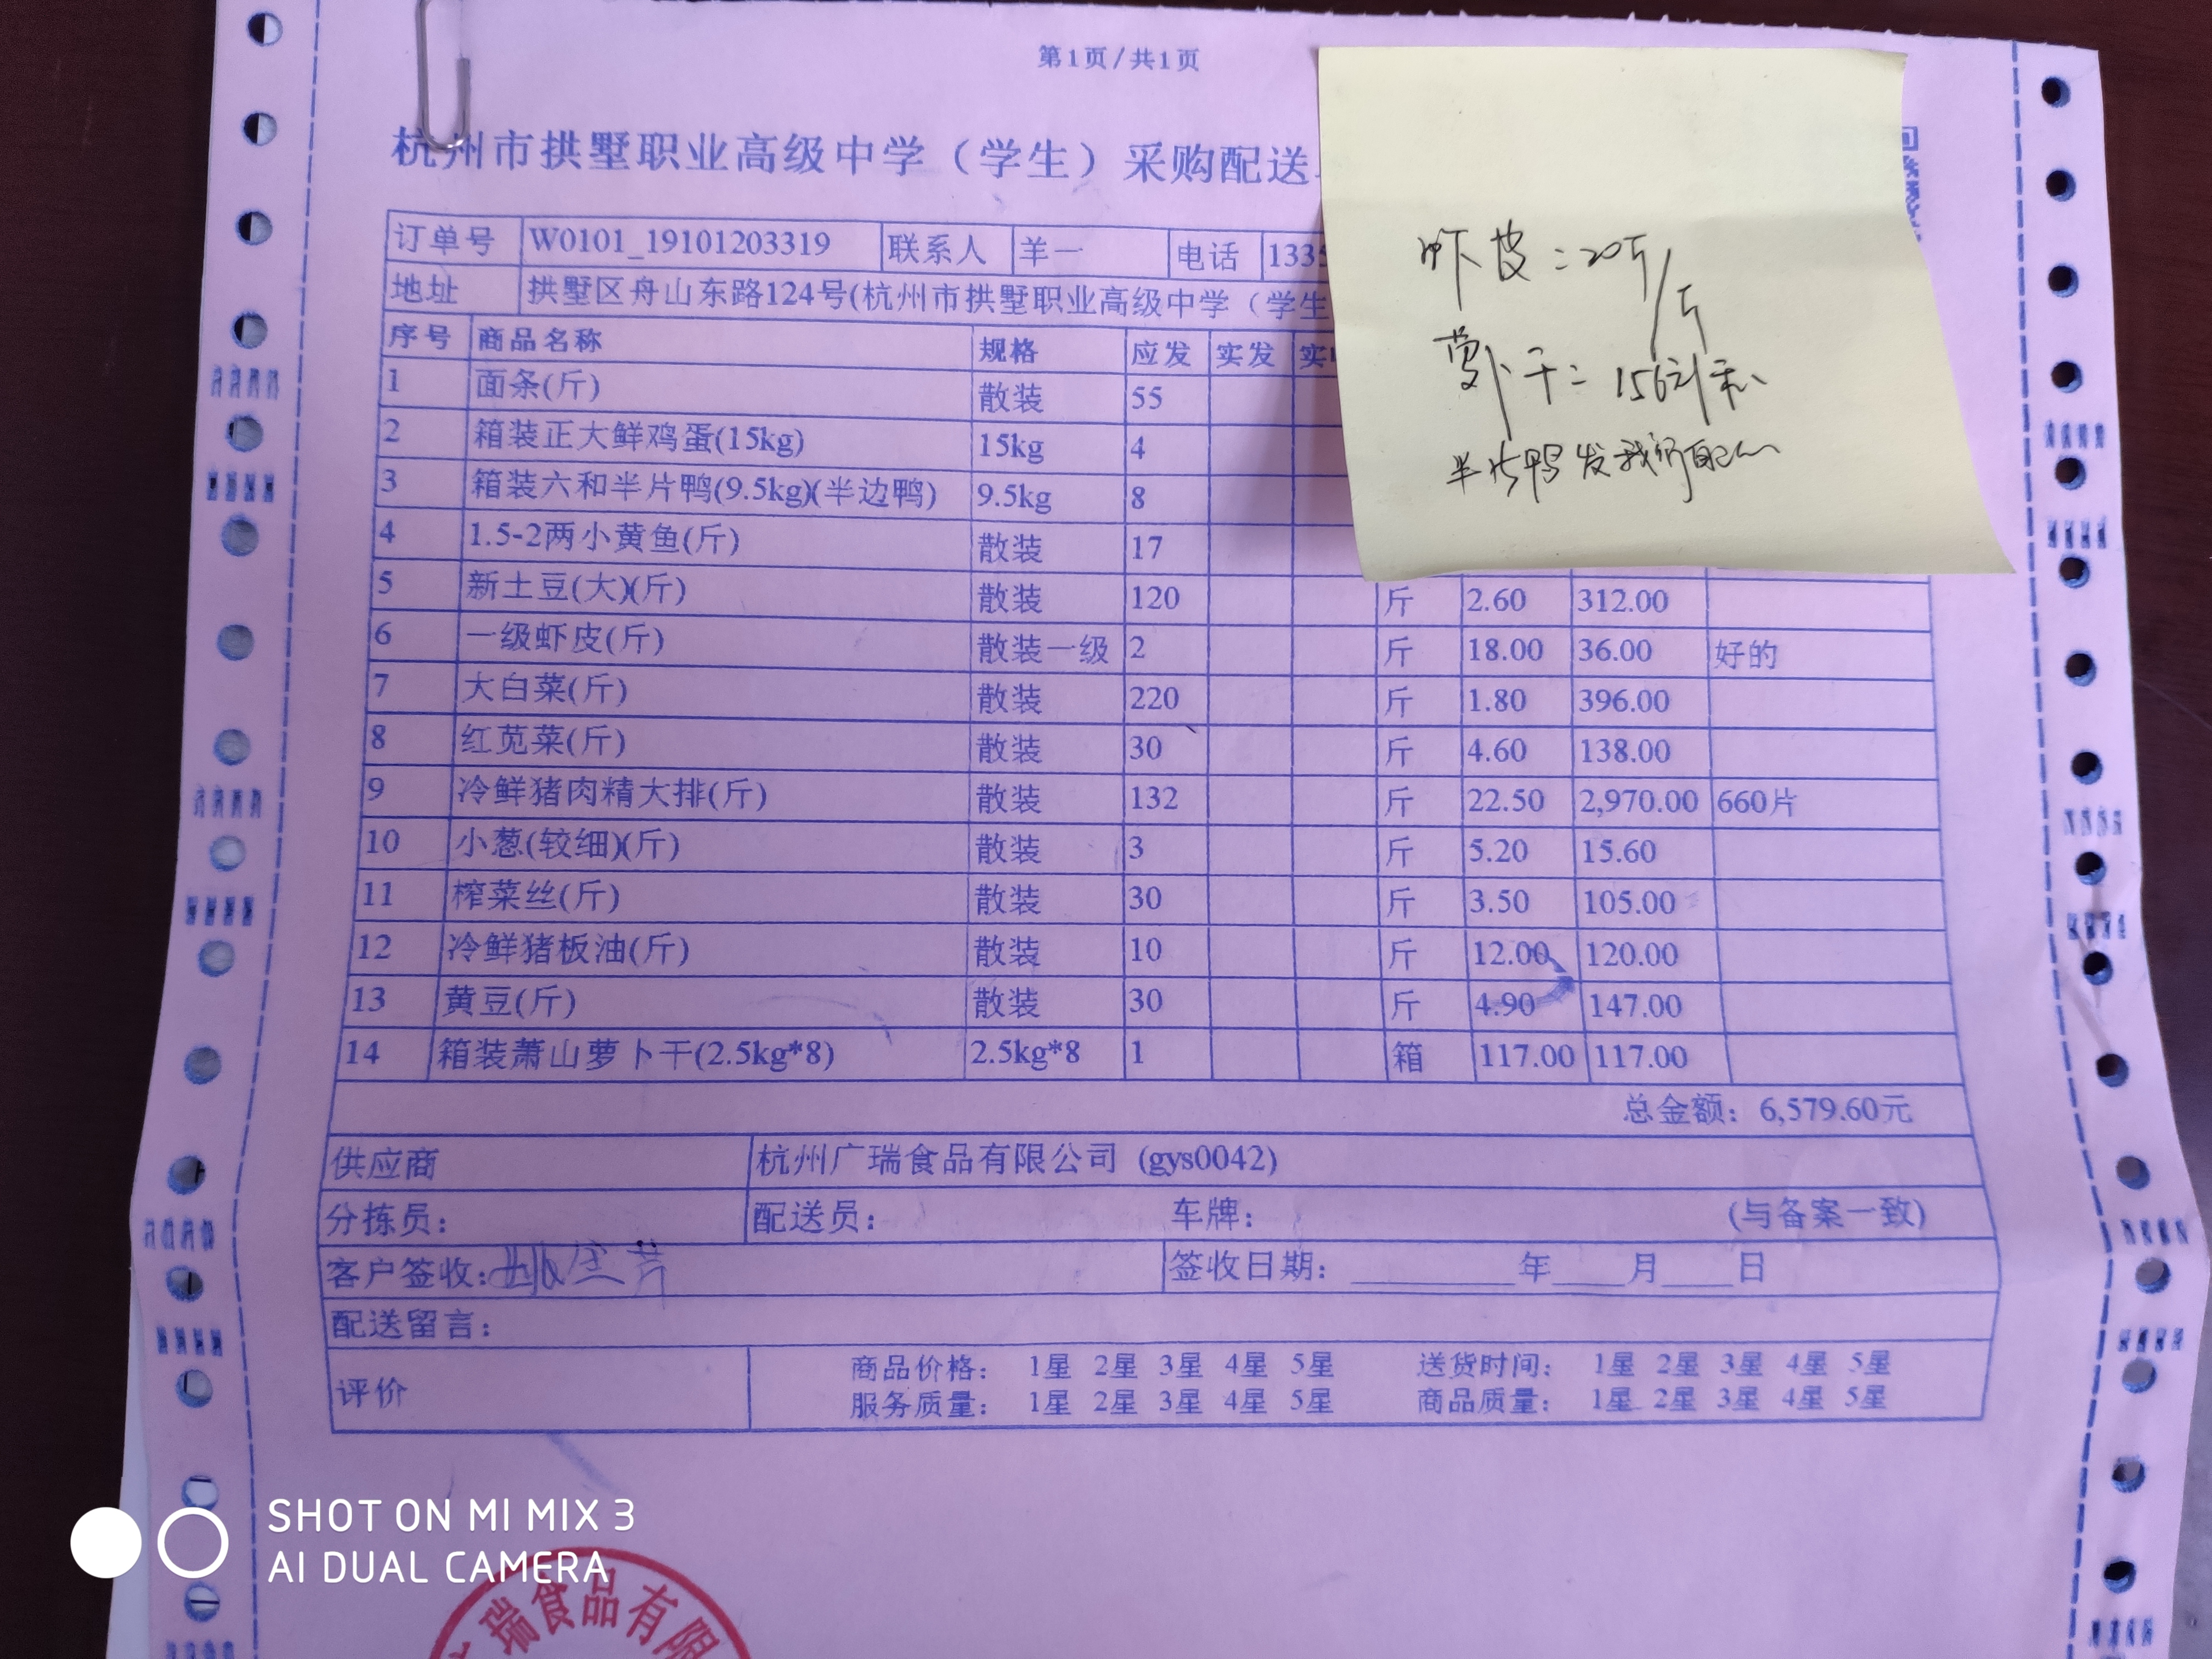 第1页/共1页
杭州市拱墅职业高级中学（学生）采购配送
订单号 W0101_19101203319 联系人 羊一 电话 1335
地址 拱墅区舟山东路124号(杭州市拱墅职业高级中学（学生
序号 商品名称 规格 应发 实发 实
1 面条(斤) 散装 55
2 箱装正大鲜鸡蛋(15kg) 15kg 4
3 箱装六和半片鸭(9.5kg)(半边鸭) 9.5kg 8
4 1.5-2两小黄鱼(斤) 散装 17
5 新土豆(大)(斤) 散装 120 斤 2.60 312.00
6 一级虾皮(斤) 散装一级 2 斤 18.00 36.00 好的
7 大白菜(斤) 散装 220 斤 1.80 396.00
8 红苋菜(斤) 散装 30 斤 4.60 138.00
9 冷鲜猪肉精大排(斤) 散装 132 斤 22.50 2,970.00 660片
10 小葱(较细)(斤) 散装 3 斤 5.20 15.60
11 榨菜丝(斤) 散装 30 斤 3.50 105.00
12 冷鲜猪板油(斤) 散装 10 斤 12.00 120.00
13 黄豆(斤) 散装 30 斤 4.90 147.00
14 箱装萧山萝卜干(2.5kg*8) 2.5kg*8 1 箱 117.00 117.00
总金额：6,579.60元
供应商 杭州广瑞食品有限公司 (gys0042)
分拣员： 配送员： 车牌： (与备案一致)
客户签收： 签收日期：________年____月____日
配送留言：
评价 商品价格： 1星 2星 3星 4星 5星 送货时间： 1星 2星 3星 4星 5星
服务质量： 1星 2星 3星 4星 5星 商品质量： 1星 2星 3星 4星 5星
虾皮：20
萝卜干：156元/
半片鸭发我
瑞食品有限
SHOT ON MI MIX 3
AI DUAL CAMERA